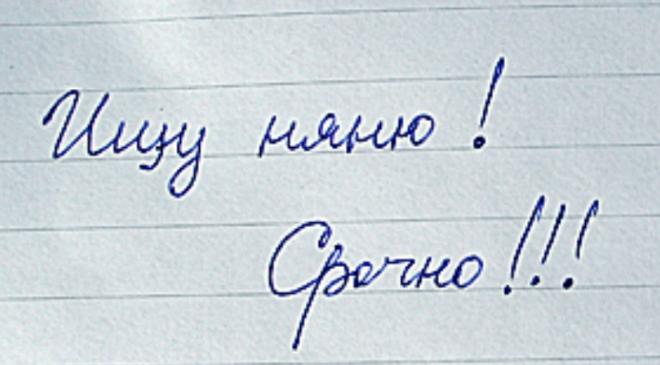 Ищу няню!
Срочно!!!